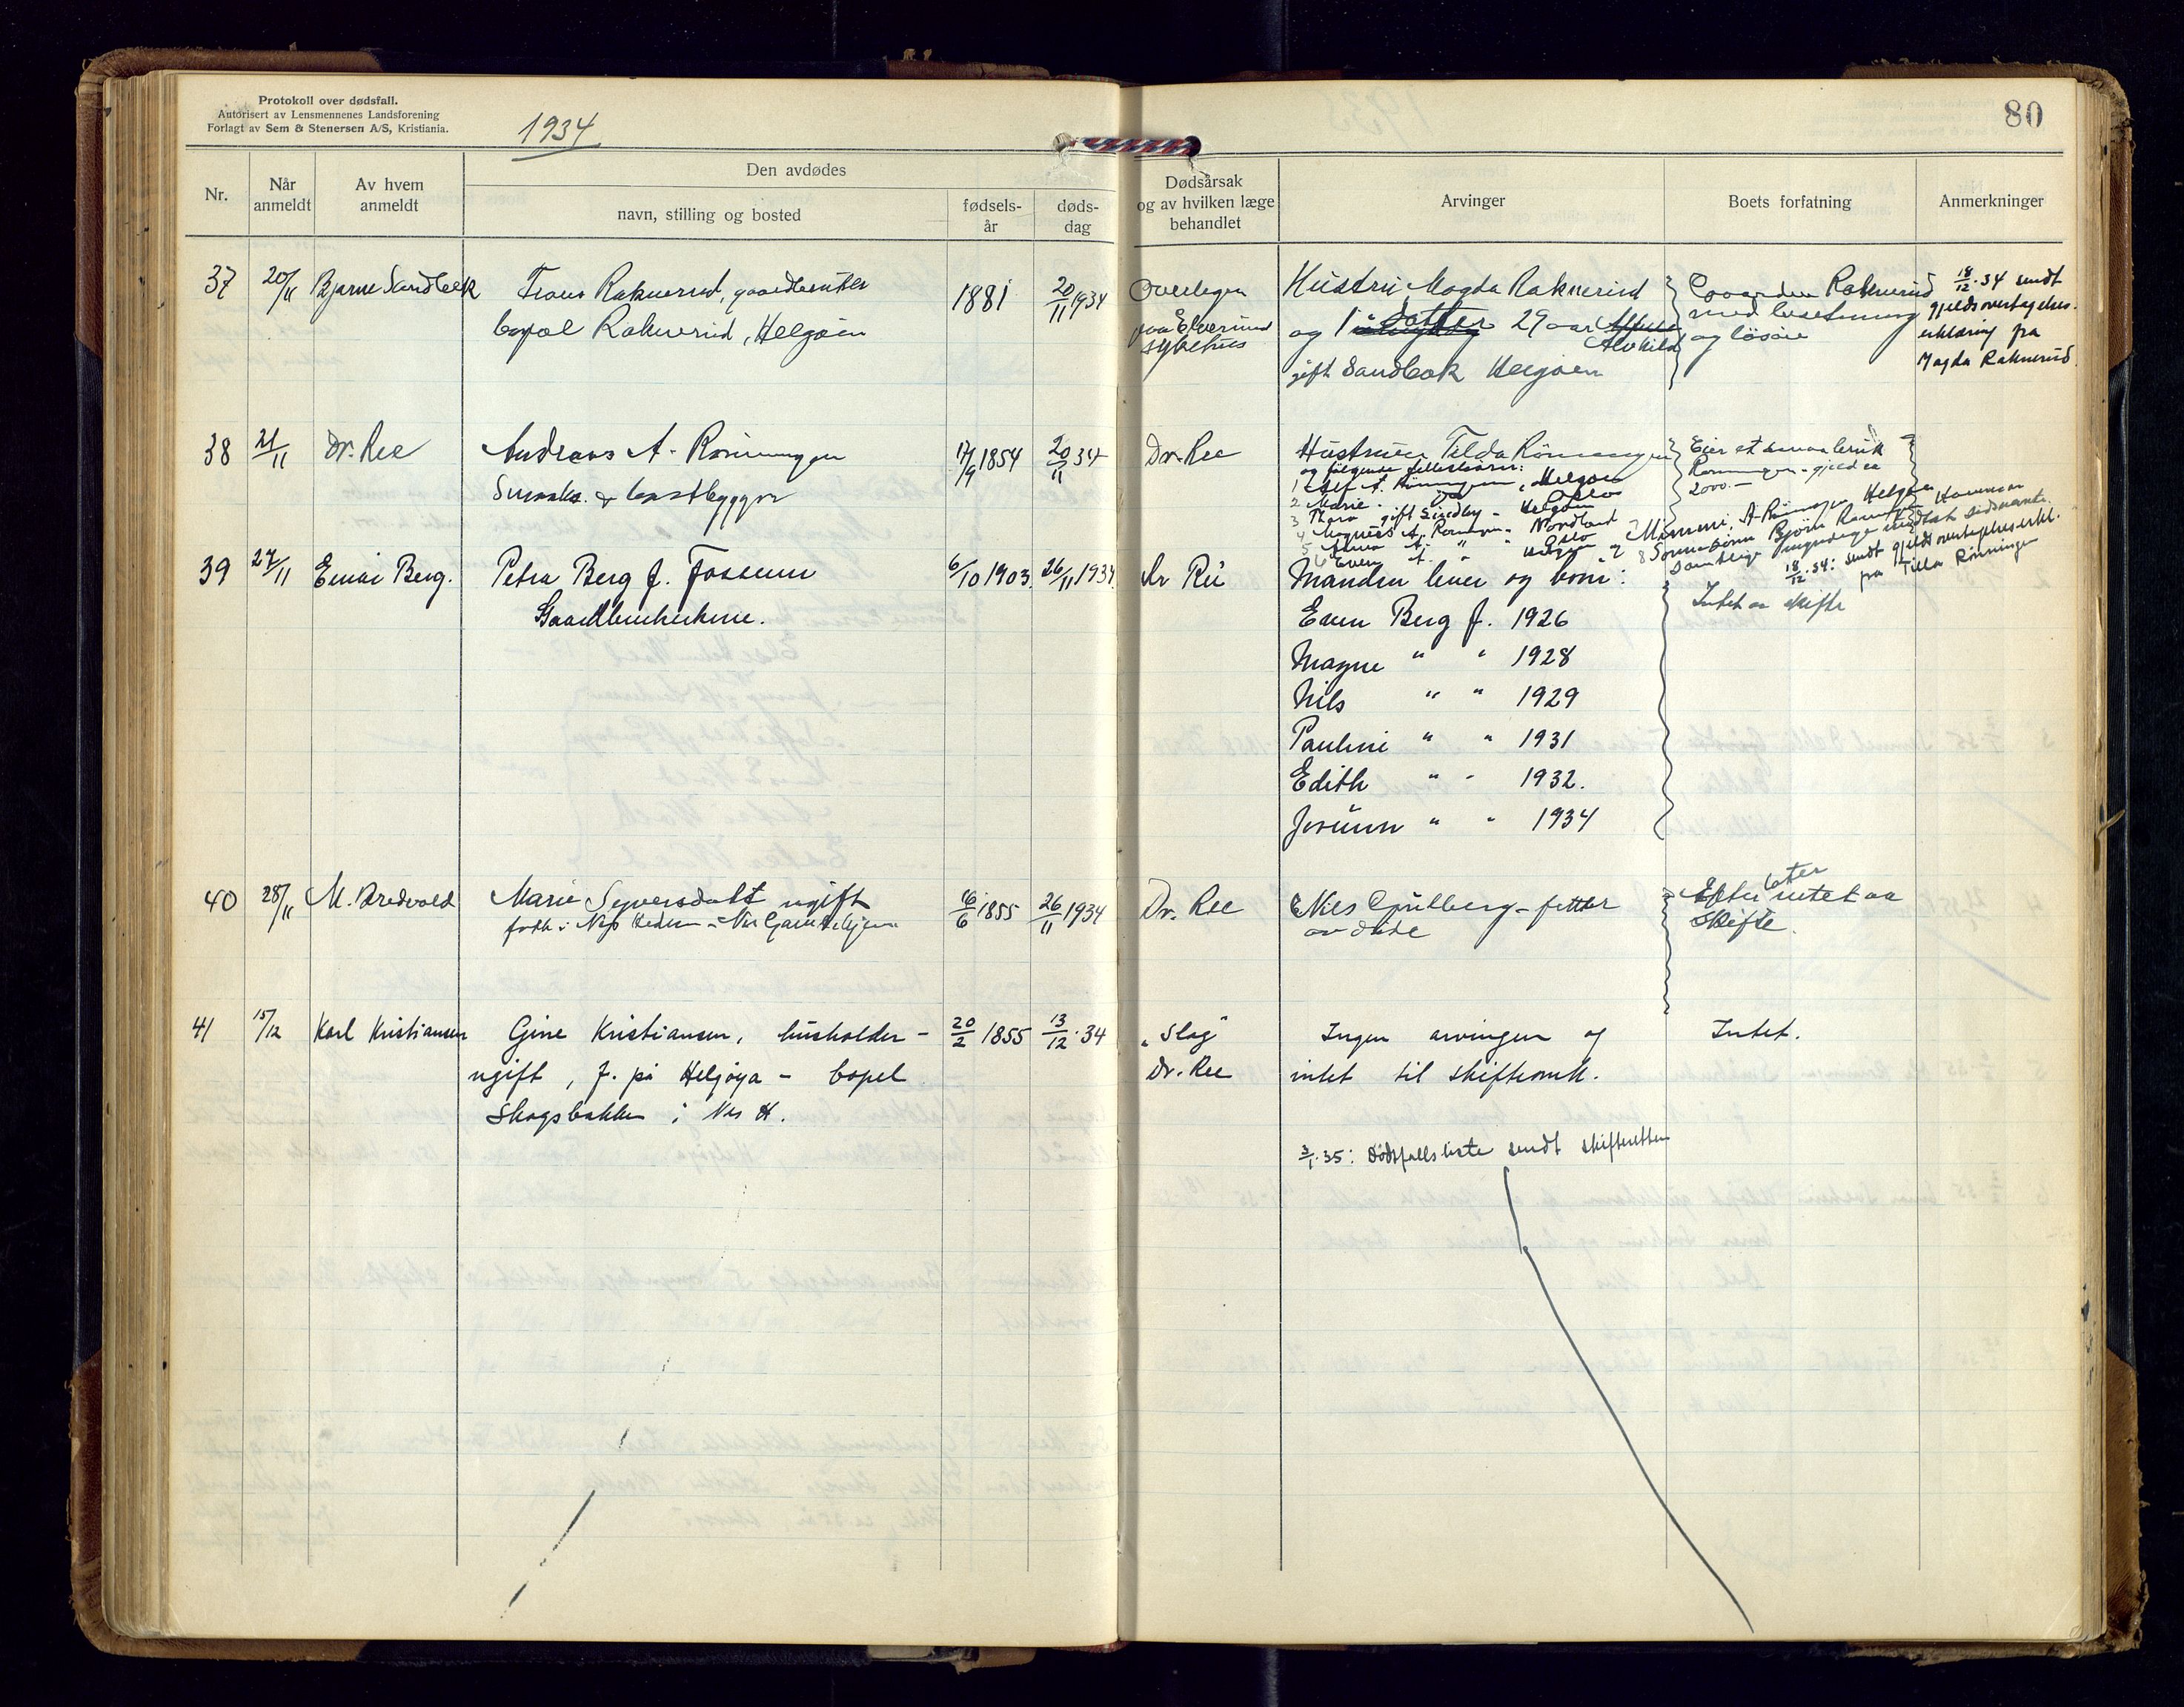 Protokoll over dødsfall.
Autorisert av Lensmennenes Landsforening
Forlagt av Sem & Stenersen A/S, Kristiania.
1934
80
Nr.
Når anmeldt
Av hvem anmeldt
Den avdødes
navn, stilling og bosted
fødsels-
år
døds-
dag
Dødsårsak
og av hvilken læge
behandlet
Arvinger
Boets forfatning
Anmerkninger
37 20/11 Bjarne Sandbek
Frans Raknerud, gaardbruker
bopæl Raknerud, Helgøen
1881
20/11 1934
Overlegen
paa Elverum
sykehus
Hustru Magda Raknerud
og 1 datter 29 aar
Alvhild
gift Sandbæk Helgøen
Gaarden Raknerud
med besetning
og løsøre
18/12.34 sendt
gjeldsovertagelses-
erklæring fra
Magda Raknerud.
38 21/11 Dr. Ree
Andreas A. Rønningen
Småbr. & baatbygger
17/9 1854
20/11 34
Dr. Ree
Hustruen Tilda Rønningen
og følgende fellesbarn:
1 A. Rønningen, Helgøen
2 Marie Oslo
3 Thora gift Lindby - Helgøen
4 Magnus A. Rønningen - Nordland
5 A. " Oslo
6 Even A. " Helgøen
7 A. Rønningen Helgøen
8 Sønnesønn Bjørn Rønningen Hamar
Samtlige myndige undtat sidstnevnte.
Eier et småbruk
Rønningen - gjeld ca
2000.-
18/12.34: sendt gjeldsovertagelseserkl.
fra Tilda Rønningen
39 27/11 Einar Berg.
Petra Berg f. Fossum
Gaardbrukerkone.
6/10 1903.
26/11 1934.
Dr Ree
Manden lever og barn:
Even Berg f. 1926
Magne " " 1928
Nils " " 1929
Pauline " " 1931
Edith " " 1932.
Jorunn " " 1934
Intet aa skifte
40 28/11 M. Bredvold
Marie Syversdatt ugift
født i Nes Hedm.
16/6 1855
26/11 1934
Dr. Ree
Nils Gullberg - fetter
av døde
Efterlater
intet aa
skifte.
41 15/12 Karl Kristiansen
Gine Kristiansen, husholder -
ugift, f. på Helgøya - bopel
Skogsbakken i Nes H.
20/2 1855
13/12.34
"Slag"
Dr. Ree
Ingen arvinger og
intet til skifteomk.
Intet.
3/1.35: Dødsfallsliste sendt skifteretten